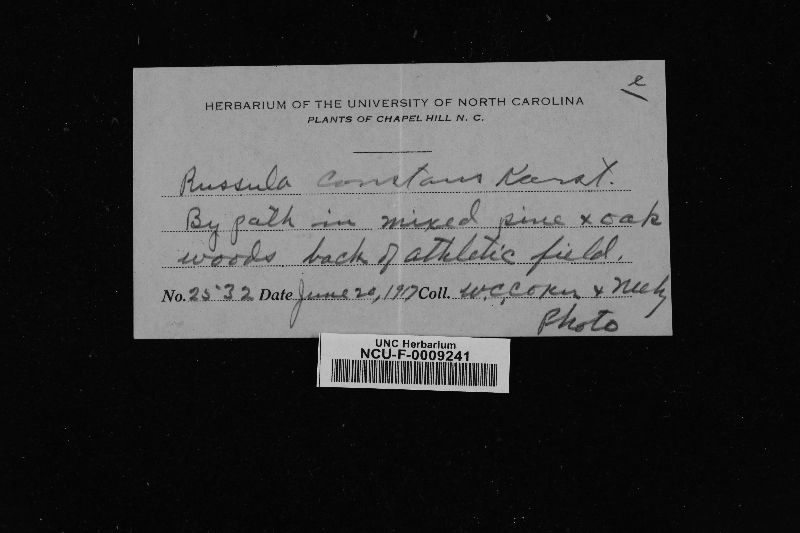 e
HERBARIUM OF THE UNIVERSITY OF NORTH CAROLINA
PLANTS OF CHAPEL HILL N. C.
Russula constans Karst.
By path in mixed pine x oak
woods back of athletic field.
No. 2532 Date June 20, 1917 Coll. W.C. Coker &
Photo
UNC Herbarium
NCU-F-0009241